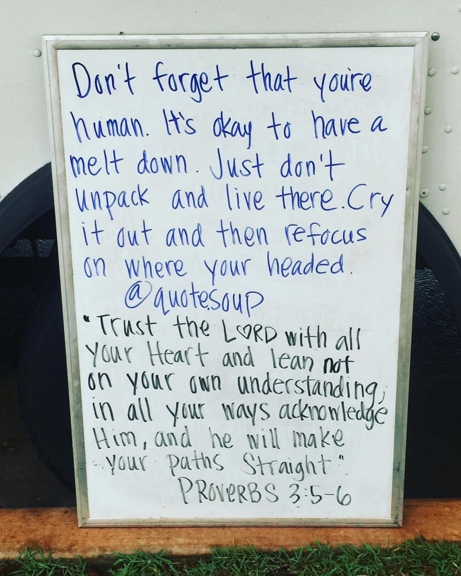 Don't forget that you're
human. It's okay to have a
melt down. Just don't
unpack and live there. Cry
it out and then refocus
on where your headed.
@quotesoup
"Trust the LORD with all
your Heart and lean not
on your own understanding;
in all your ways acknowledge
Him, and he will make
your paths Straight".
PROVERBS 3:5-6